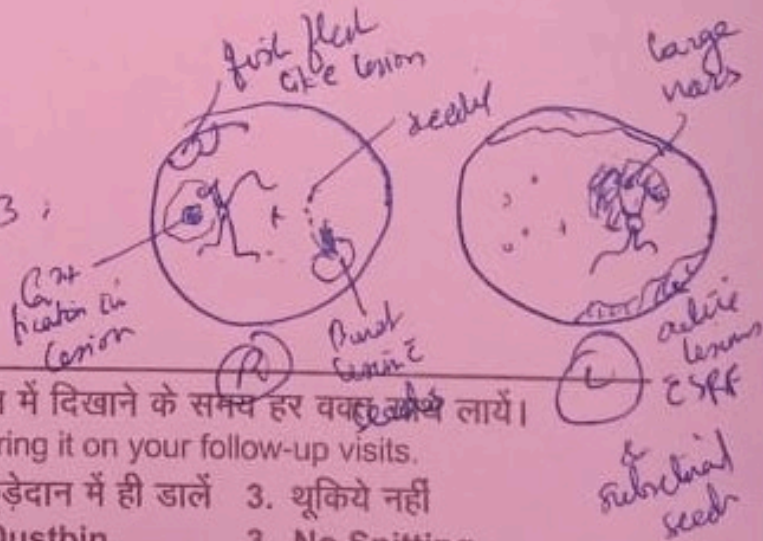 fish flesh
like lesion
seeds
large
nvas
3 :
Ca2+
fication in
lesion
Burst
lesion c̄
seeds
R
L
active
lesions
c̄ SRF
&
subretinal
seeds
में दिखाने के समय हर वक्त साथ लायें।
ring it on your follow-up visits.
ड़ेदान में ही डालें 3. थूकिये नहीं
Dustbin 3. No Spitting